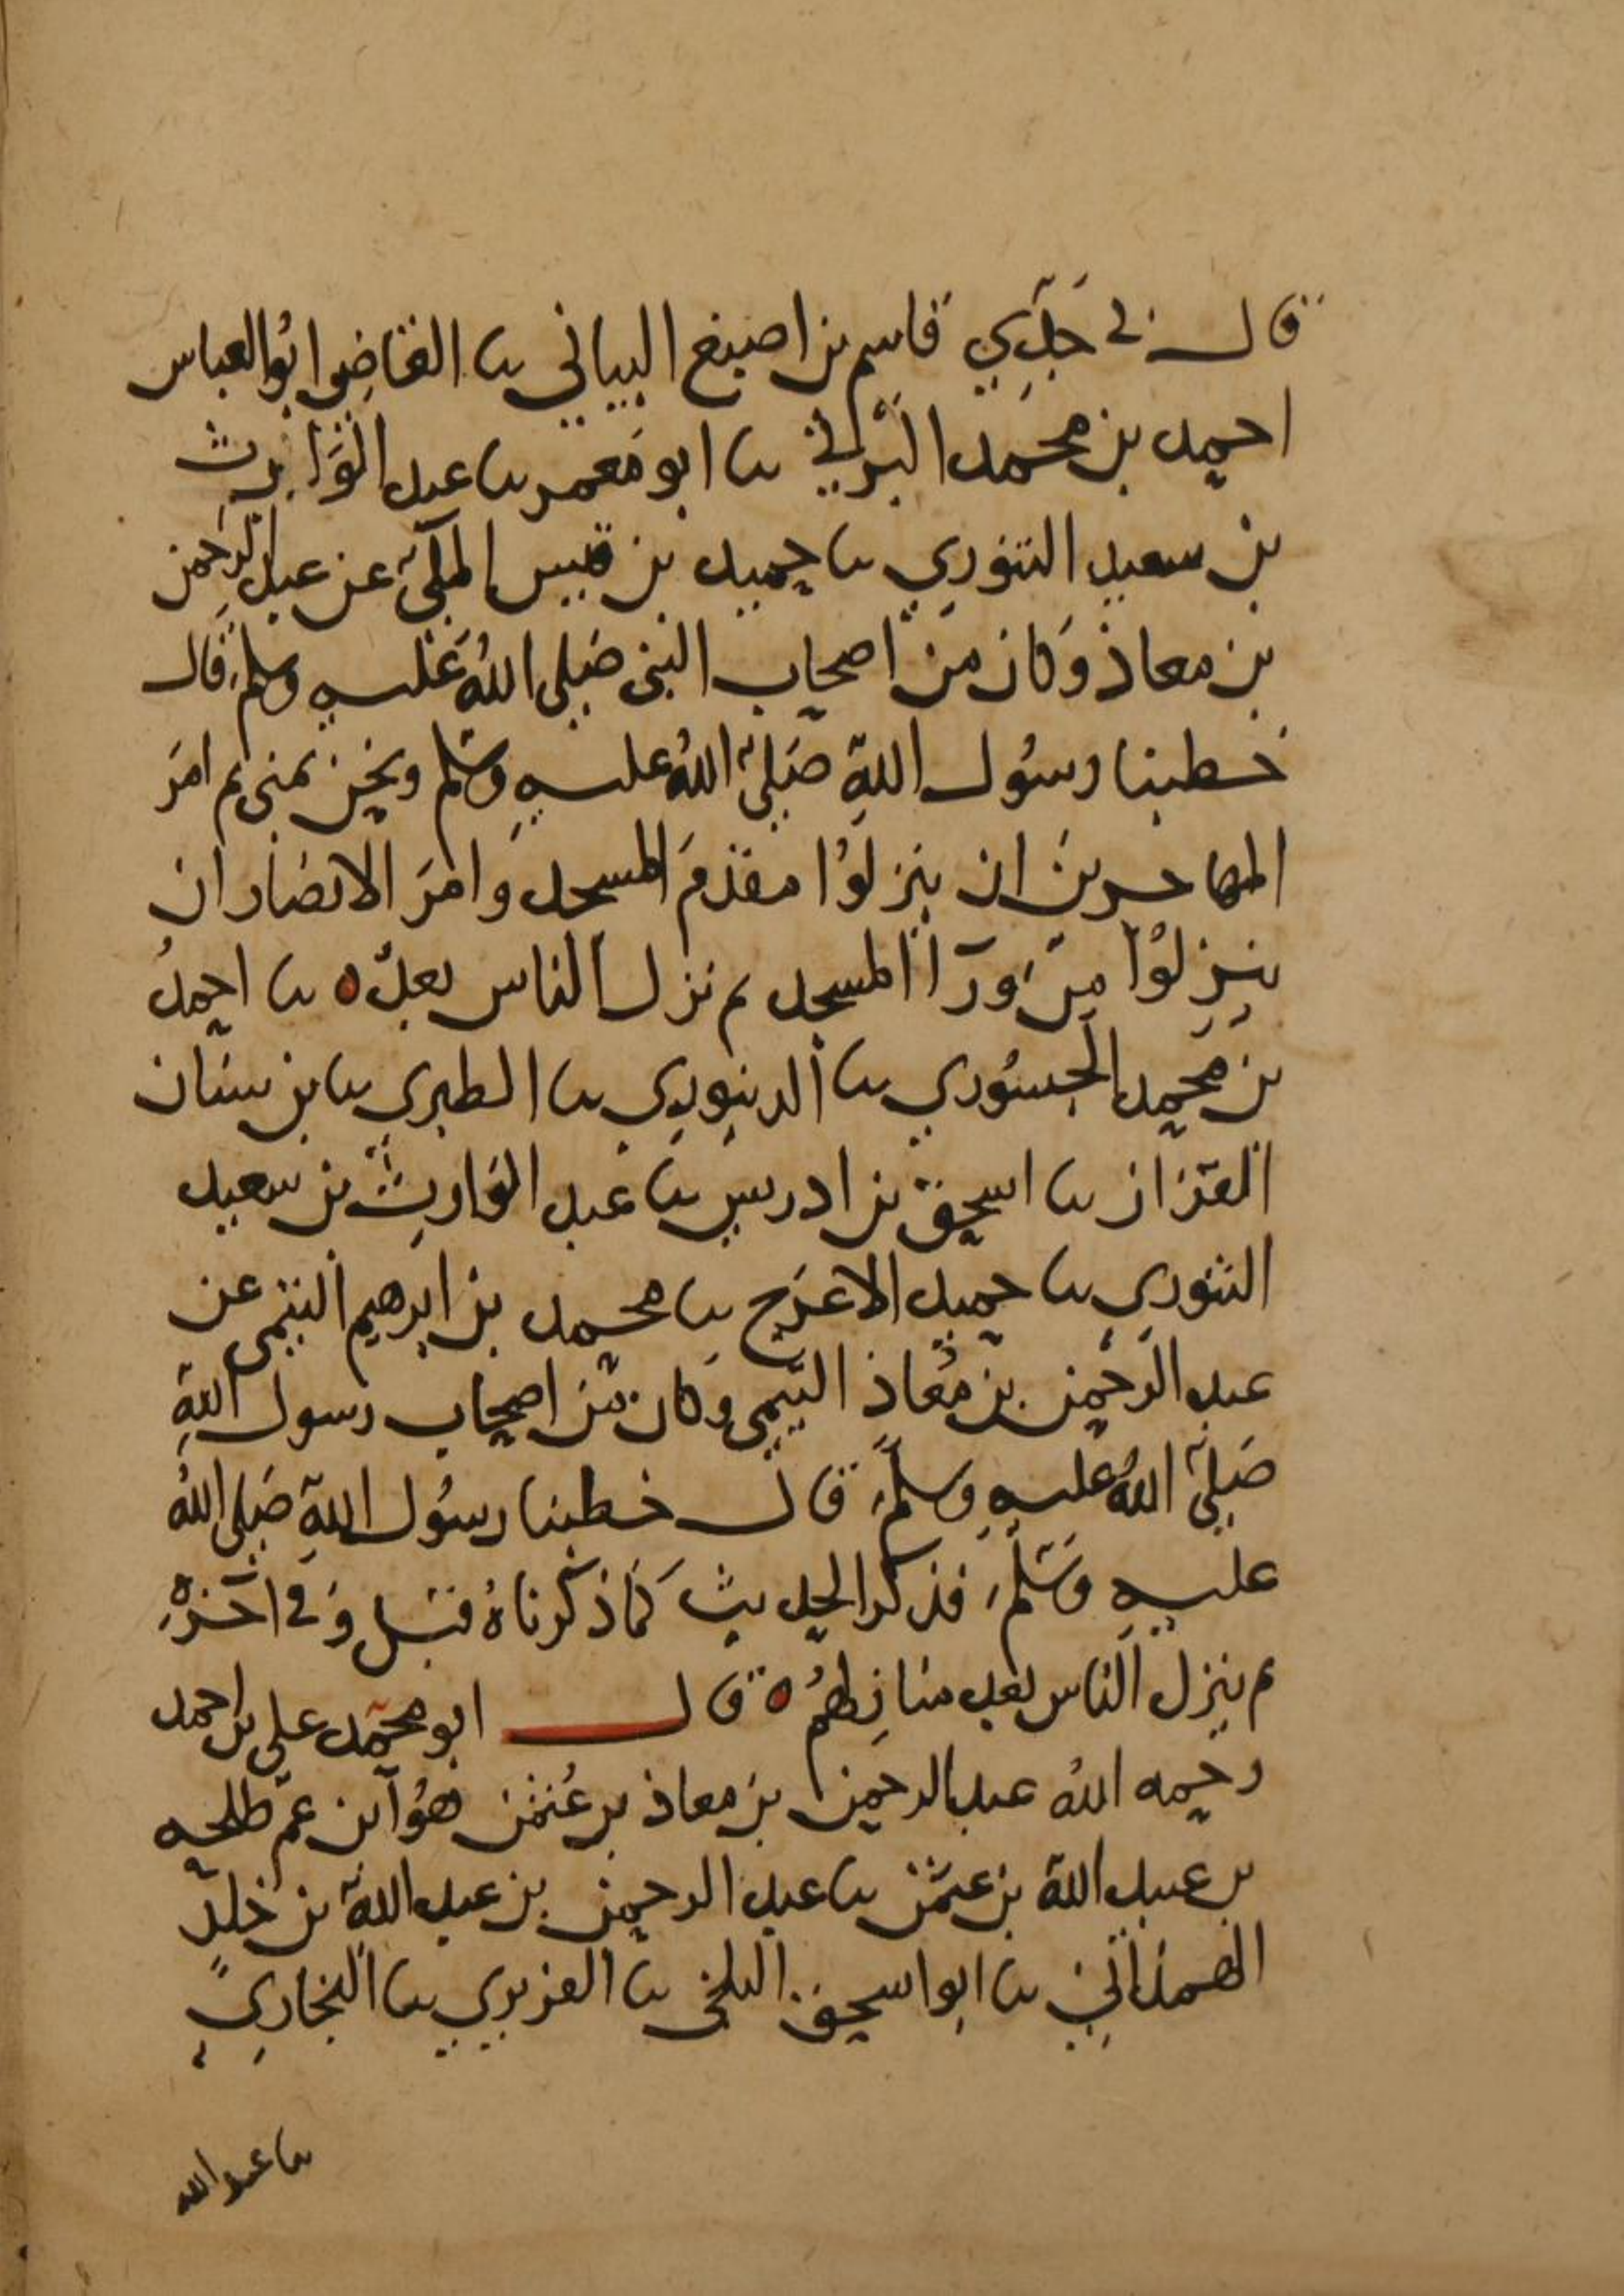 قال لي جَدّي قاسم بن اصبغ البياني ثنا القاضي ابُو العباس
احمد بن محمد البَرْتي ثنا ابو مَعمر ثنا عبد الوَارِث
بن سعيد التنوري ثنا حميد بن قيس المكّي عن عبد الرحمن
بن معاذ وَكان من اصحاب النبي صَلى اللهُ عَليه وسلم قال
خطبنا رسُول اللهِ صَلىَ اللهُ عليهِ وسَلم ونحن بمنى ثم امَر
المهاجرينَ ان ينزلوُا مقدّمَ المسجد وامَر الانصَار ان
ينزِلوُا مِن وَرَآ المسجد ثم نزل الناس بعدُ ٥ ثنا احمدُ
بن محمد الجسُوري ثنا الدينوري ثنا الطبري ثنا بن سنان
القزاز ثنا اسحق بن ادريس ثنا عبد الوَارِث بن سعيد
التنوري ثنا حميد الاعرَج ثنا محمد بن ابرهيم التيمي عن
عبد الرحمن بن مُعَاذ التيمي وكان من اصحاب رسول اللهِ
صَلىَ اللهُ عليهِ وسلمَ قال خطبنا رسُول اللهِ صَلى اللهُ
عليهِ وسَلمَ فذكر الحديث كمَا ذكرناهُ قبَل وَفي آخرهِ
ثم ينزل الناس بعد منازلهُم ٥ قال ابو محمّد علي بن احمد
رحمه اللهُ عبد الرحمن بن معاذ بن عُثمن هوُ ابن عمّ طلحه
بن عبيد الله بن عثمَن ثنا عبد الرحمن بن عبد الله بن خلدٍ
الهمدَاني ثنا ابو اسحق البلخي ثنا الفربري ثنا البخاري
ثنا عبد الله